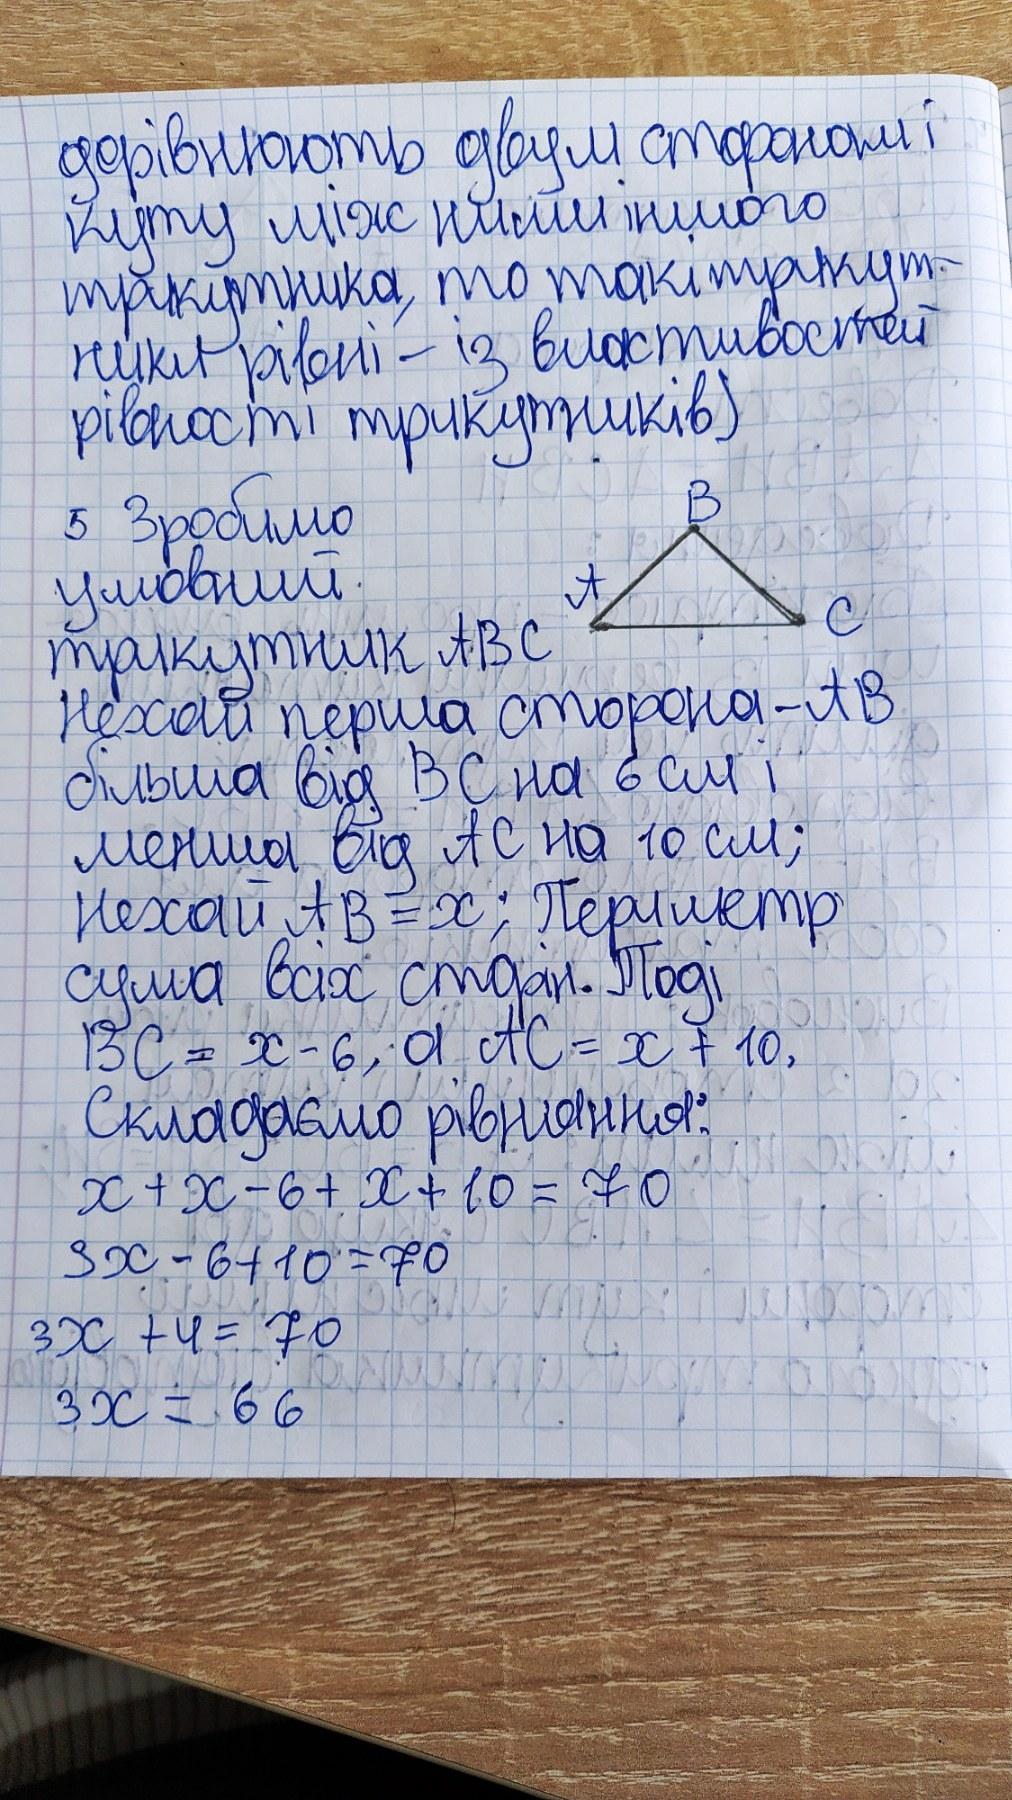 дорівнюють двум сторонам і
куту між ними іншого
трикутника, то такі трикут-
ники рівні – із властивостей
рівності трикутників)
B
5 Зробимо
умовний
A
C
трикутник ABC
Нехай перша сторона – AB
більша від BC на 6 см і
менша від AC на 10 см;
Нехай AB = x; Периметр
сума всіх сторін. Тоді
BC = x - 6, а AC = x + 10.
Складаємо рівняння:
x + x - 6 + x + 10 = 70
3x - 6 + 10 = 70
3x + 4 = 70
3x = 66